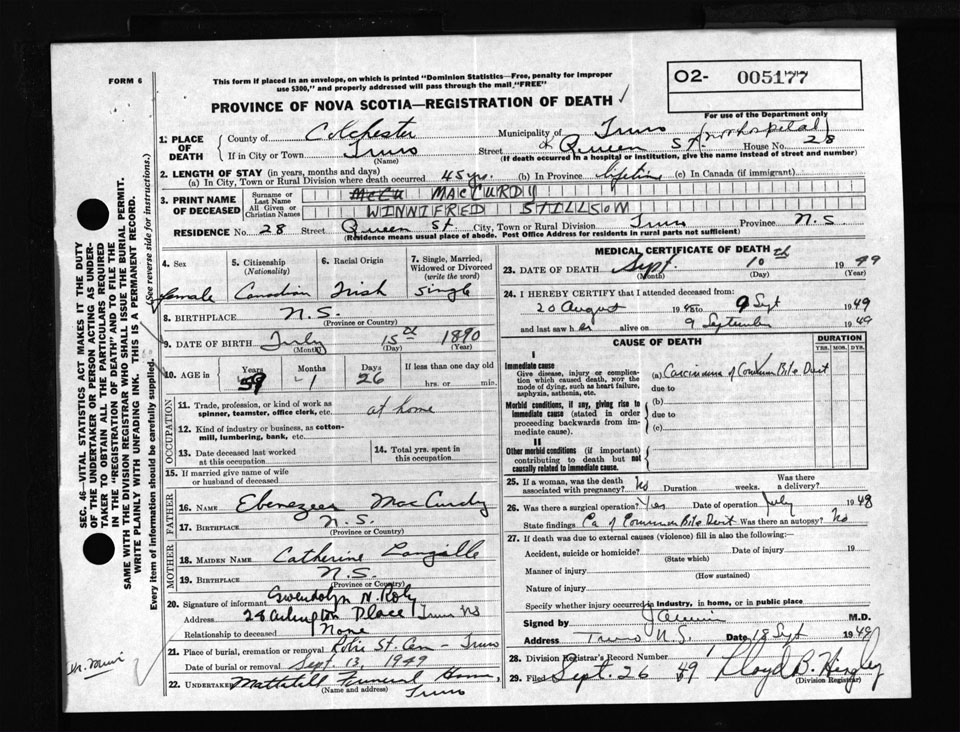 FORM 6
This form if placed in an envelope, on which is printed "Dominion Statistics—Free, penalty for improper
use $300," and properly addressed will pass through the mail "FREE"
O2- 005177
For use of the Department only
PROVINCE OF NOVA SCOTIA—REGISTRATION OF DEATH
1. PLACE OF DEATH
County of Colchester Municipality of Truro (not hospital)
If in City or Town Truro (Name) Street Queen St. House No. 28
(If death occurred in a hospital or institution, give the name instead of street and number)
2. LENGTH OF STAY (in years, months and days)
(a) In City, Town or Rural Division where death occurred 45 yrs. (b) In Province lifetime (c) In Canada (if immigrant)
3. PRINT NAME OF DECEASED
Surname or Last Name McCu MACCURDY
All Given or Christian Names WINNIFRED STILLSOM
RESIDENCE No. 28 Street Queen St. City, Town or Rural Division Truro Province N.S.
(Residence means usual place of abode. Post Office Address for residents in rural parts not sufficient)
4. Sex 5. Citizenship (Nationality) 6. Racial Origin 7. Single, Married, Widowed or Divorced (write the word)
female Canadian Irish single
8. BIRTHPLACE N.S.
(Province or Country)
9. DATE OF BIRTH July 15th 1890
(Month) (Day) (Year)
10. AGE in Years Months Days If less than one day old
59 1 26 hrs. or min.
OCCUPATION
11. Trade, profession, or kind of work as spinner, teamster, office clerk, etc. at home
12. Kind of industry or business, as cotton-mill, lumbering, bank, etc.
13. Date deceased last worked at this occupation
14. Total yrs. spent in this occupation
15. If married give name of wife or husband of deceased
FATHER
16. NAME Ebenezer MacCurdy
17. BIRTHPLACE N.S.
(Province or Country)
MOTHER
18. MAIDEN NAME Catherine Langille
19. BIRTHPLACE N.S.
(Province or Country)
20. Signature of informant Gwendolyn N.
Address 28 Arlington Place Truro NS
Relationship to deceased None
21. Place of burial, cremation or removal Robie St. Cem - Truro
Date of burial or removal Sept. 13, 1949
22. Undertaker Mattatall Funeral Home,
(Name and address) Truro
MEDICAL CERTIFICATE OF DEATH
23. DATE OF DEATH Sept. 10th 1949
(Month) (Day) (Year)
24. I HEREBY CERTIFY that I attended deceased from:
20 August 1948 to 9 Sept 1949
and last saw her alive on 9 September 1949
CAUSE OF DEATH
DURATION
YRS. MOS. DYS.
I
Immediate cause
Give disease, injury or complication which caused death, NOT the mode of dying, such as heart failure, asphyxia, asthenia, etc.
(a) Carcinoma of Common Bile Duct
due to
Morbid conditions, if any, giving rise to immediate cause (stated in order proceeding backwards from immediate cause).
(b)
due to
(c)
II
Other morbid conditions (if important) contributing to death but not causally related to immediate cause.
25. If a woman, was the death associated with pregnancy? No Duration weeks. Was there a delivery?
26. Was there a surgical operation? Yes Date of operation July 1948
State findings Ca of Common Bile Duct Was there an autopsy? No
27. If death was due to external causes (violence) fill in also the following:—
Accident, suicide or homicide? Date of injury 19
(State which)
Manner of injury
(How sustained)
Nature of injury
Specify whether injury occurred in industry, in home, or in public place
Signed by M.D.
Address Truro N.S. Date 18 Sept 1949
28. Division Registrar's Record Number
29. Filed Sept. 26 49 Lloyd B.
(Division Registrar)
SEC. 46—VITAL STATISTICS ACT MAKES IT THE DUTY
OF THE UNDERTAKER OR PERSON ACTING AS UNDER-
TAKER TO OBTAIN ALL THE PARTICULARS REQUIRED
IN THE "REGISTRATION OF DEATH" AND TO FILE THE
SAME WITH THE DIVISION REGISTRAR WHO SHALL ISSUE THE BURIAL PERMIT.
WRITE PLAINLY WITH UNFADING INK. THIS IS A PERMANENT RECORD.
Every item of information should be carefully supplied. (See reverse side for instructions.)